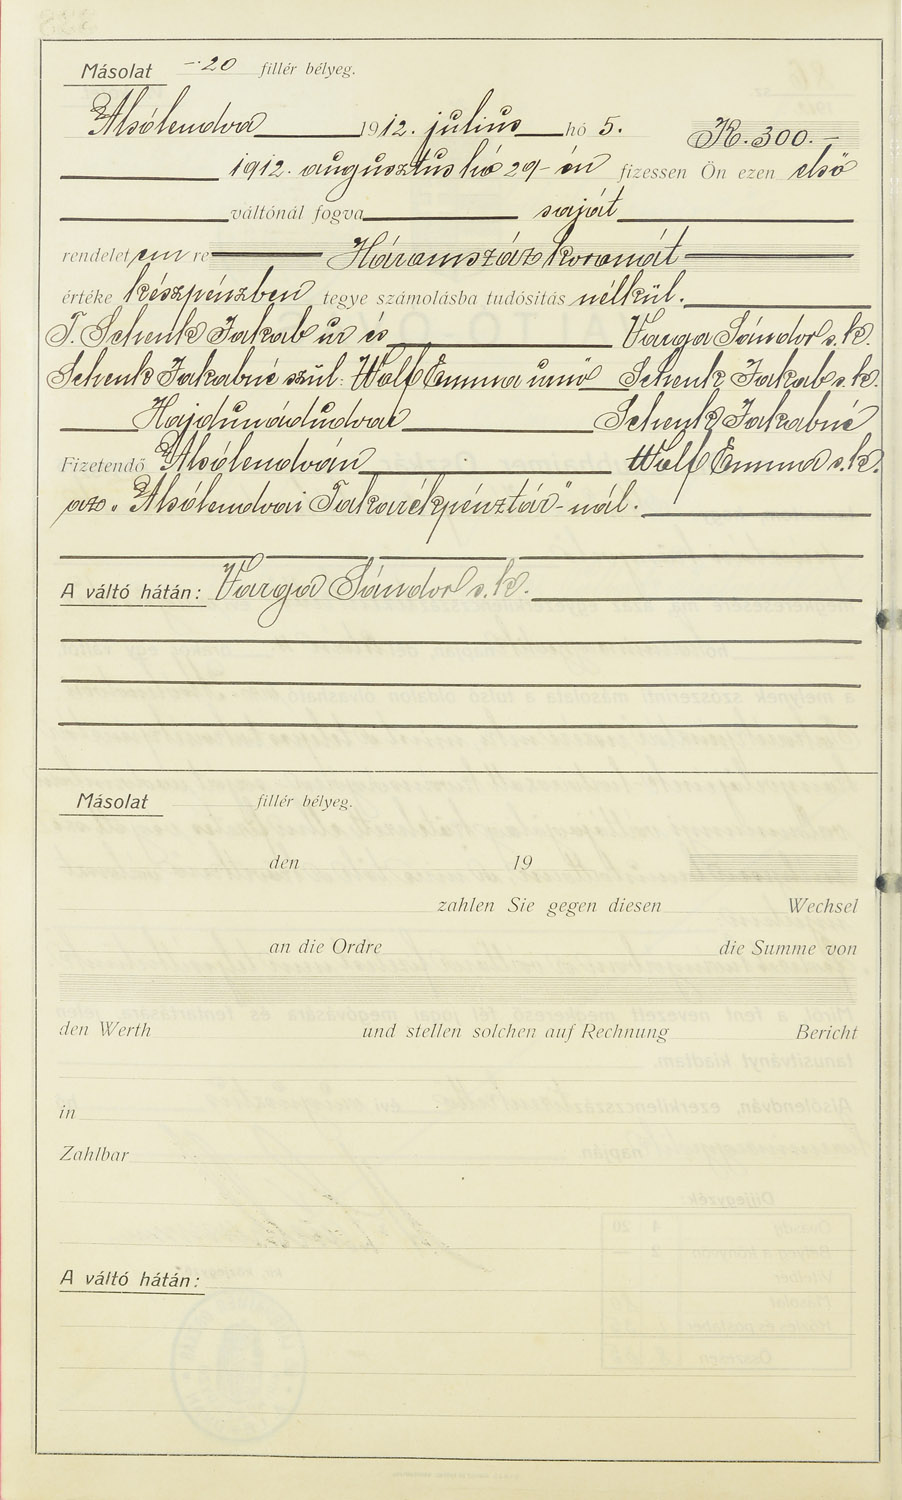 Másolat -·20 fillér bélyeg.
Alsólendva 1912. július hó 5. K. 300.-
1912. augusztus hó 29-én fizessen Ön ezen első
váltónál fogva saját
rendeletemre Háromszáz koronát
értéke készpénzben tegye számolásba tudósitás nélkül.
T. Schenk Jakab úr és Varga Sándor s. k.
Schenk Jakabné szül: Wolf Emma urnő Schenk Jakab s. k.
Hajdunádudvar Schenk Jakabné
Fizetendő Alsólendván Wolf Emma s. k.
az „Alsólendvai Takarékpénztár"-nál.
A váltó hátán: Varga Sándor s. k.
Másolat fillér bélyeg.
den 19
zahlen Sie gegen diesen Wechsel
an die Ordre die Summe von
den Werth und stellen solchen auf Rechnung Bericht
in
Zahlbar
A váltó hátán: